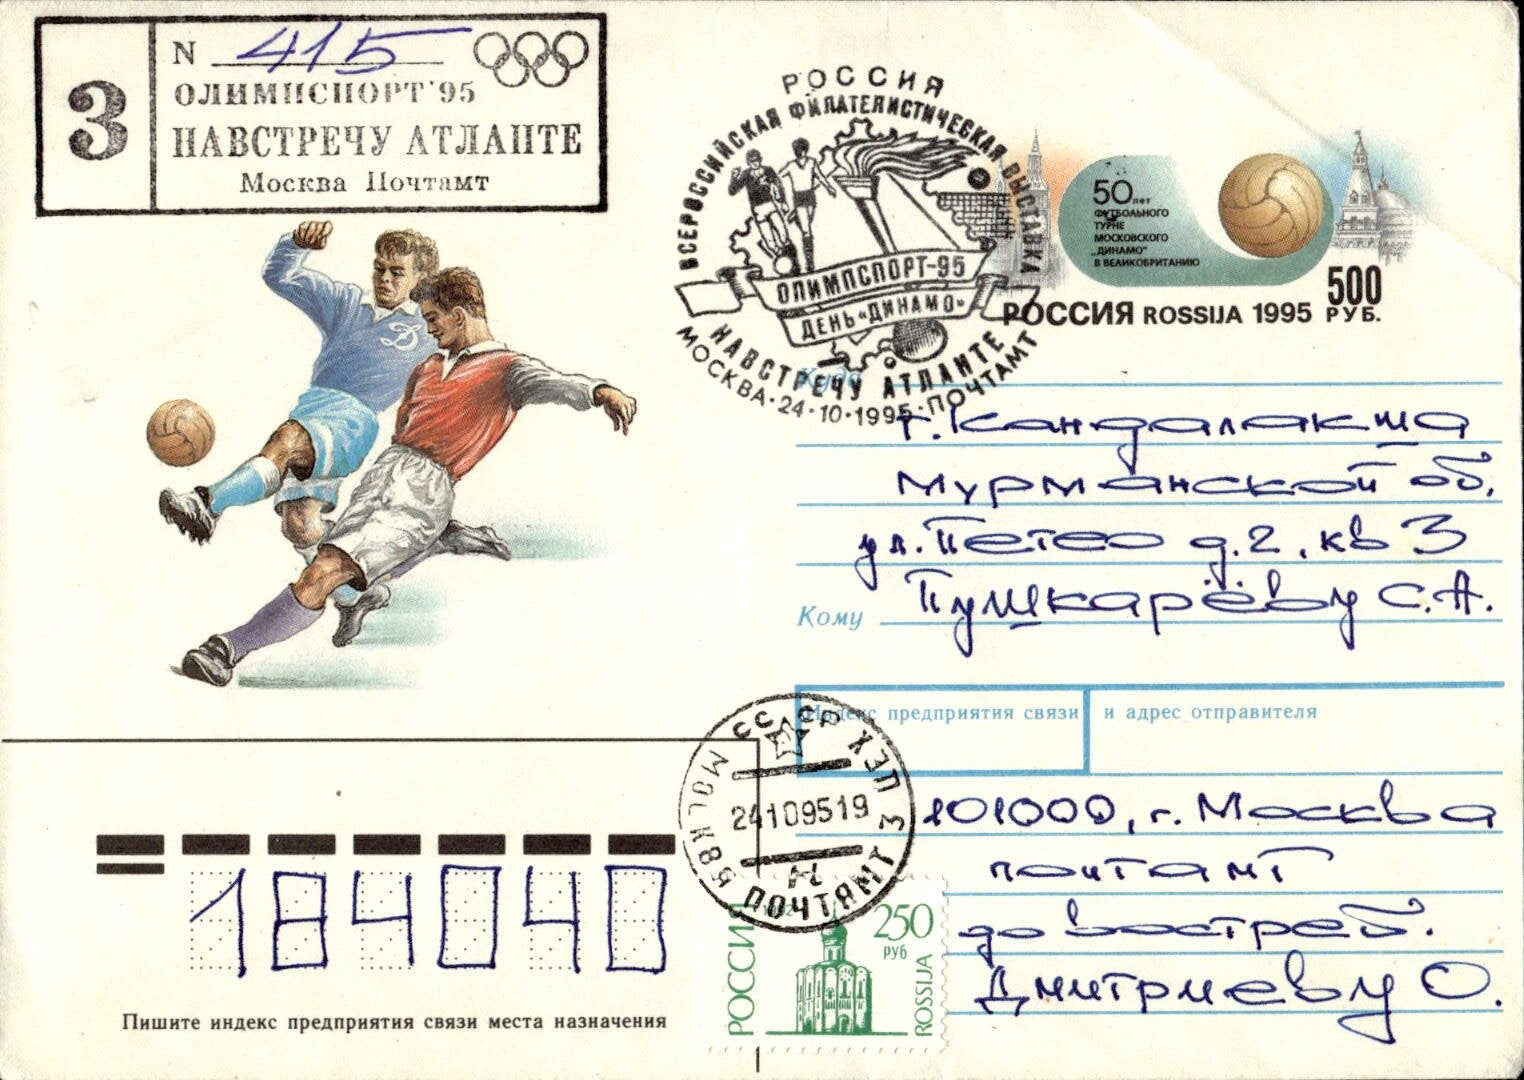 З
N 415
ОЛИМПСПОРТ'95
НАВСТРЕЧУ АТЛАНТЕ
Москва Почтамт
РОССИЯ
ВСЕРОССИЙСКАЯ ФИЛАТЕЛИСТИЧЕСКАЯ ВЫСТАВКА
ОЛИМПСПОРТ-95
ДЕНЬ «ДИНАМО»
НАВСТРЕЧУ АТЛАНТЕ
МОСКВА·24·10·1995·ПОЧТАМТ
50 лет
ФУТБОЛЬНОГО
ТУРНЕ
МОСКОВСКОГО
„ДИНАМО"
В ВЕЛИКОБРИТАНИЮ
500
РОССИЯ ROSSIJA 1995 РУБ.
Д
Куда
г. Кандалакша
Мурманской об,
ул. Петео д.2, кв 3
Кому Пушкарёву С.А.
Индекс предприятия связи и адрес отправителя
101000, г. Москва
почтамт
до востреб.
Дмитриеву О.
СССР
МОСКВА
24109519
ПОЧТАМТ 3
184040
Пишите индекс предприятия связи места назначения
РОССИЯ
1992
250
РУБ
ROSSIJA